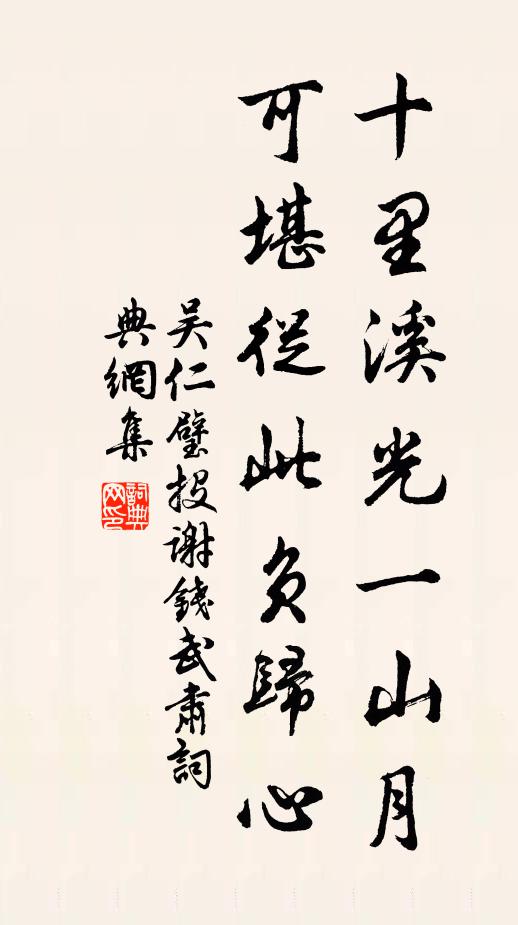 十里溪光一山月
可堪從此負歸心
吴仁璧投謝錢武肅詞
典網集
詞典
网印